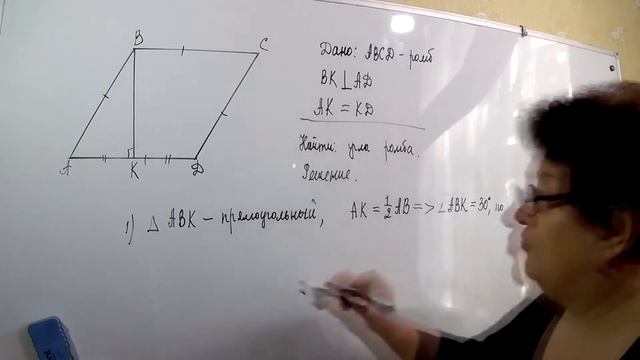 B
C
A
K
D
Дано: ABCD - ромб
BK⊥AD
AK = KD
Найти: углы ромба.
Решение.
1) △ ABK – прямоугольный, AK = 1/2 AB => ∠ABK = 30°, по